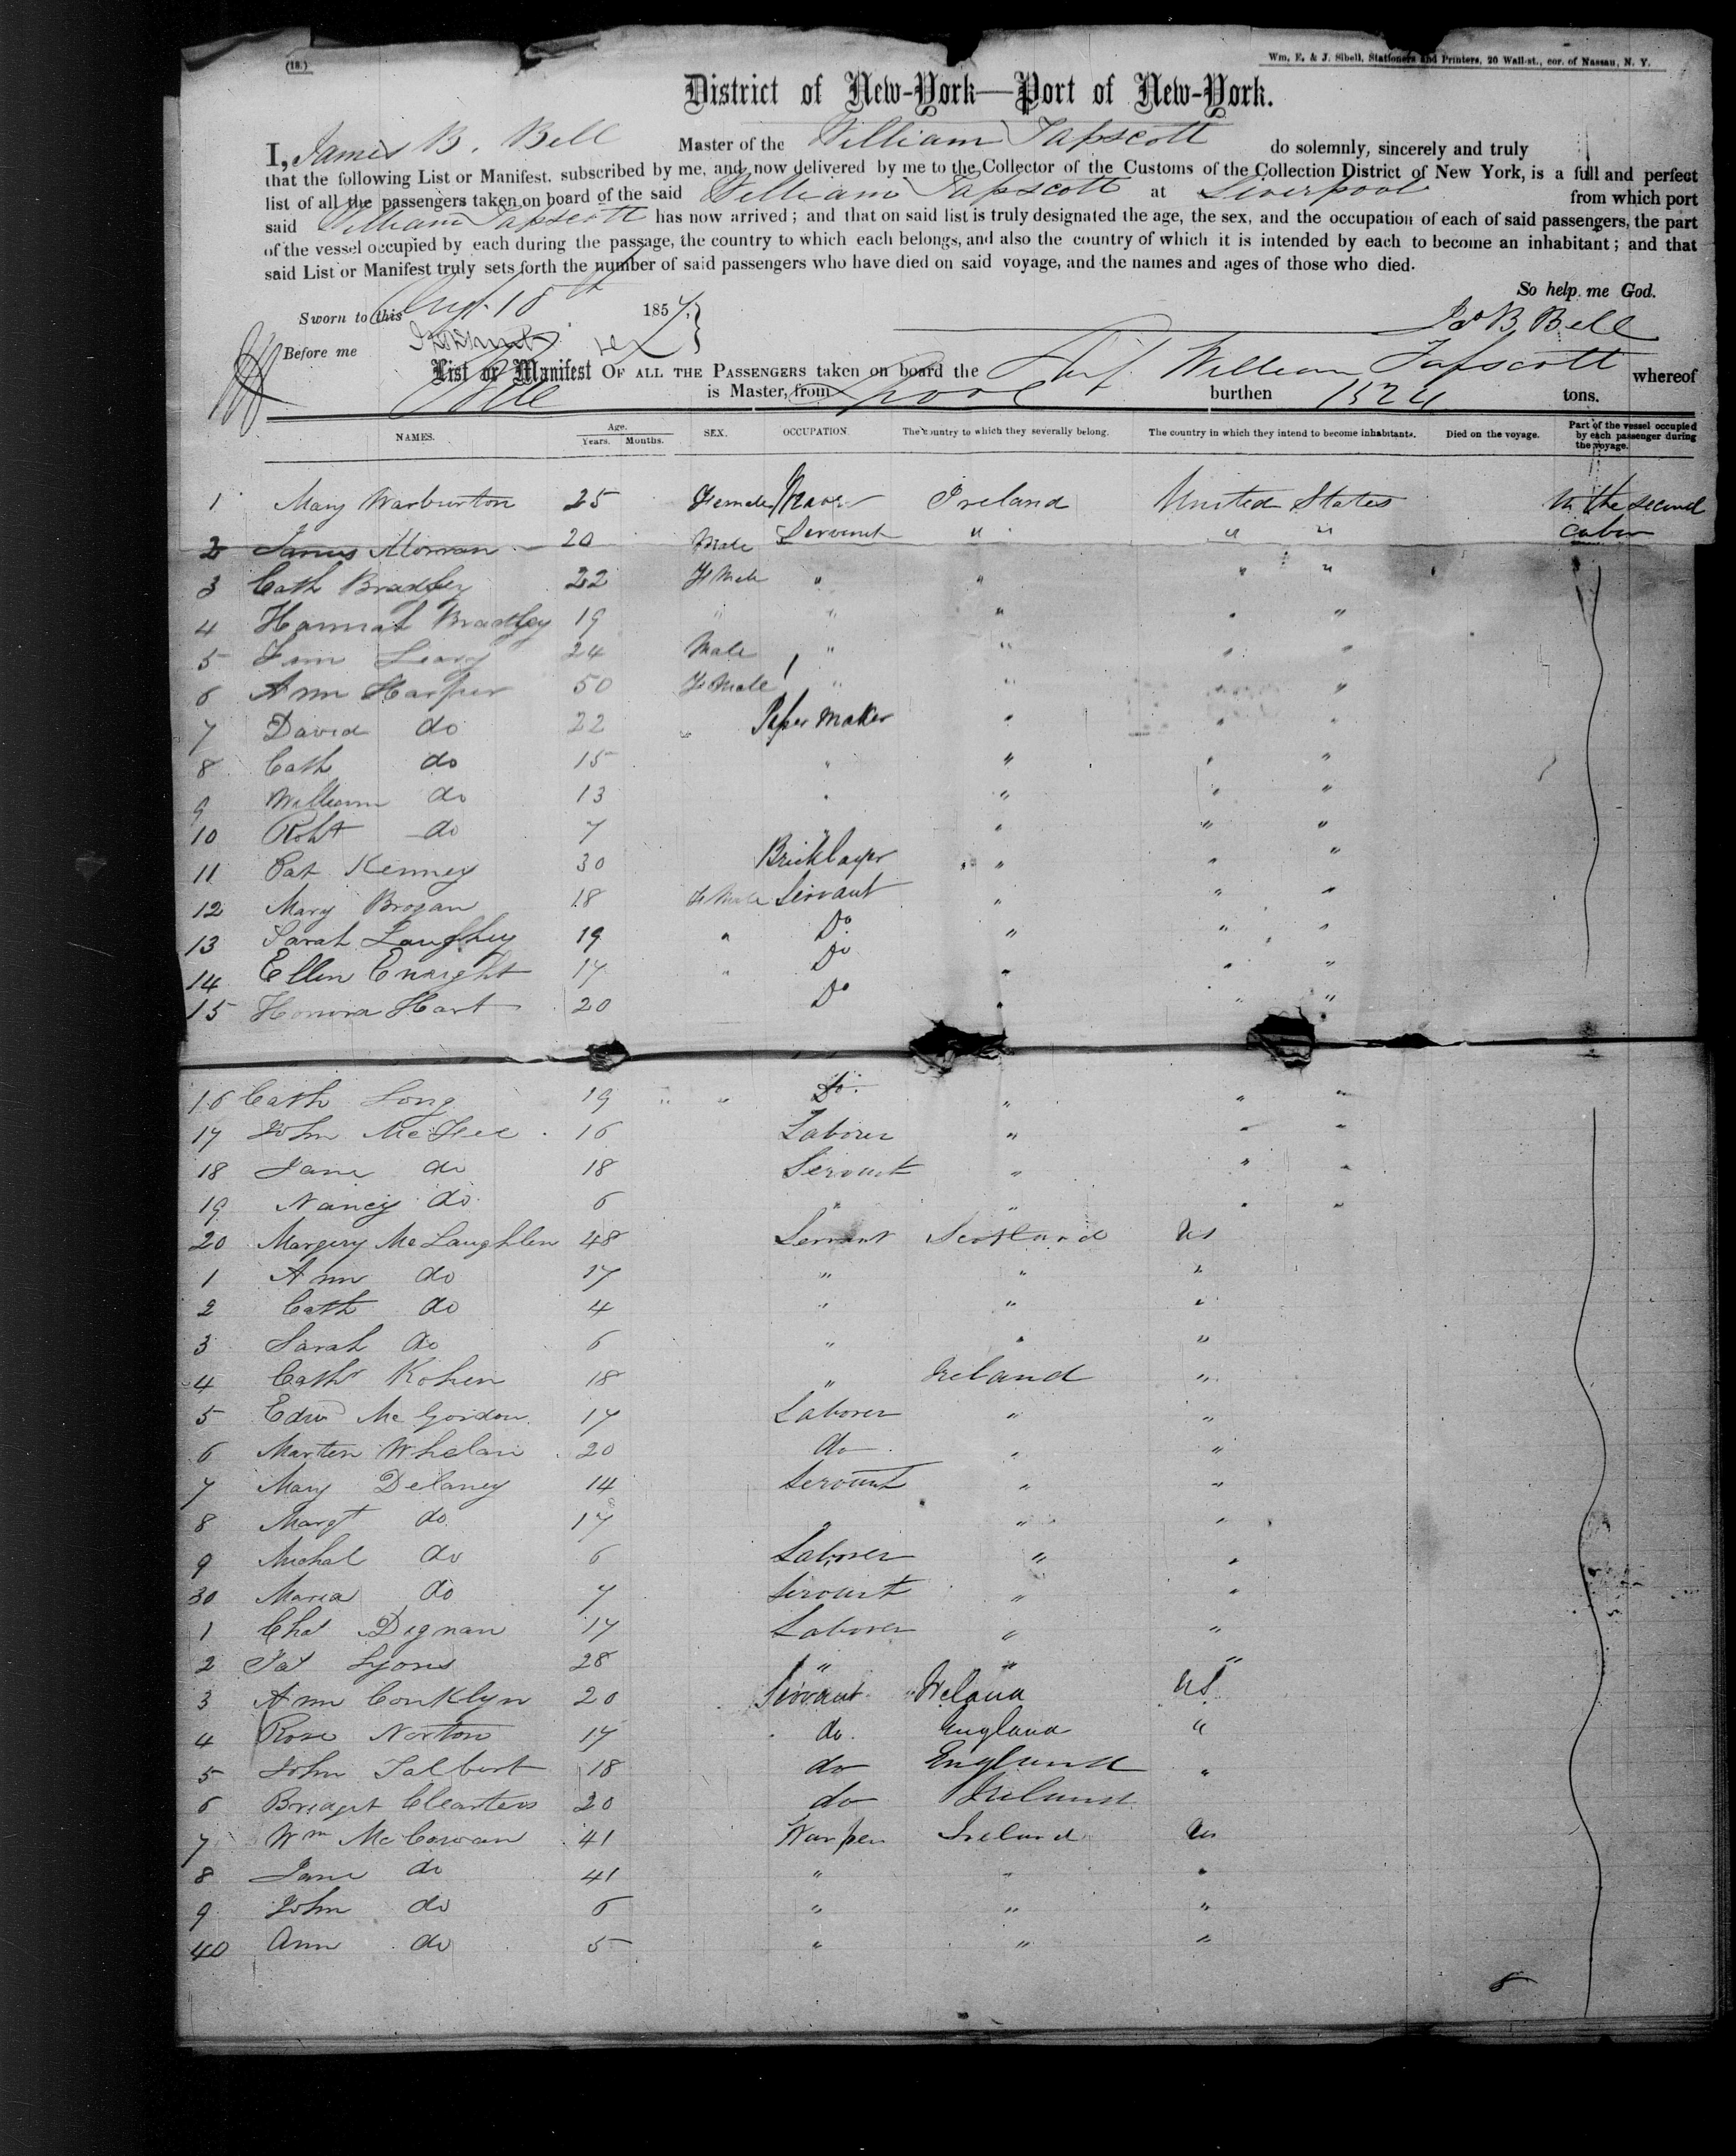 (18.)
Wm. E. & J. Sibell, Stationers and Printers, 20 Wall-st., cor. of Nassau, N. Y.
District of New-York—Port of New-York.
I, James B. Bell Master of the William Tapscott do solemnly, sincerely and truly
that the following List or Manifest, subscribed by me, and now delivered by me to the Collector of the Customs of the Collection District of New York, is a full and perfect
list of all the passengers taken on board of the said William Tapscott at Liverpool from which port
said William Tapscott has now arrived; and that on said list is truly designated the age, the sex, and the occupation of each of said passengers, the part
of the vessel occupied by each during the passage, the country to which each belongs, and also the country of which it is intended by each to become an inhabitant; and that
said List or Manifest truly sets forth the number of said passengers who have died on said voyage, and the names and ages of those who died.
So help me God.
Sworn to this Augt 18th 1857
Jas B Bell
Before me
List or Manifest OF ALL THE PASSENGERS taken on board the Ship William Tapscott whereof
Bell is Master, from Lpool burthen 1524 tons.
NAMES. Age. Years. Months. SEX. OCCUPATION. The country to which they severally belong. The country in which they intend to become inhabitants. Died on the voyage. Part of the vessel occupied by each passenger during the voyage.
1 Mary Warburton 25 Female Ireland United States In the second
2 James Moman 20 Male Servant " " " cabin
3 Cath Bradley 22 Fe Male " " " "
4 Hannah Bradley 19 " " " " "
5 Leary 24 Male " " " "
6 Ann Harper 50 Fe Male " " " "
7 David do 22 Paper Maker " " "
8 Cath do 15 " " " "
9 William do 13 " " " "
10 Robt do 7 " " " "
11 Pat Kenney 30 Bricklayer " " "
12 Mary Brogan 18 Fe Male Servant " " "
13 Sarah Laughey 19 " Do " " "
14 Ellen Enright 17 " Do " " "
15 Honora Hart 20 Do " " "
16 Cath Long 19 " " Do " " "
17 John McGee 16 Laborer " " "
18 Jane do 18 Servant " " "
19 Nancy do 6 " " " "
20 Margery McLaughlen 48 Servant Scotland US
1 Ann do 17 " " "
2 Cath do 4 " " "
3 Sarah do 6 " " "
4 Cath Kohen 18 " Ireland "
5 Edwd McGordon 17 Laborer " "
6 Marten Whelan 20 do " "
7 Mary Delaney 14 Servant " "
8 Margt do 17 " " "
9 Michal do 6 Laborer " "
30 Maria do 7 Servant " "
1 Chas Dignan 17 Laborer " "
2 Pat Lyons 28 " " "
3 Ann Conklyn 20 Servant Ireland US
4 Rose Norton 17 do England "
5 John Talbert 18 do England "
6 Bridget Clearters 20 do Ireland
7 Wm McCowan 41 Ireland US
8 Jane do 41 " " "
9 John do 6 " " "
40 Ann do 5 " " "
8